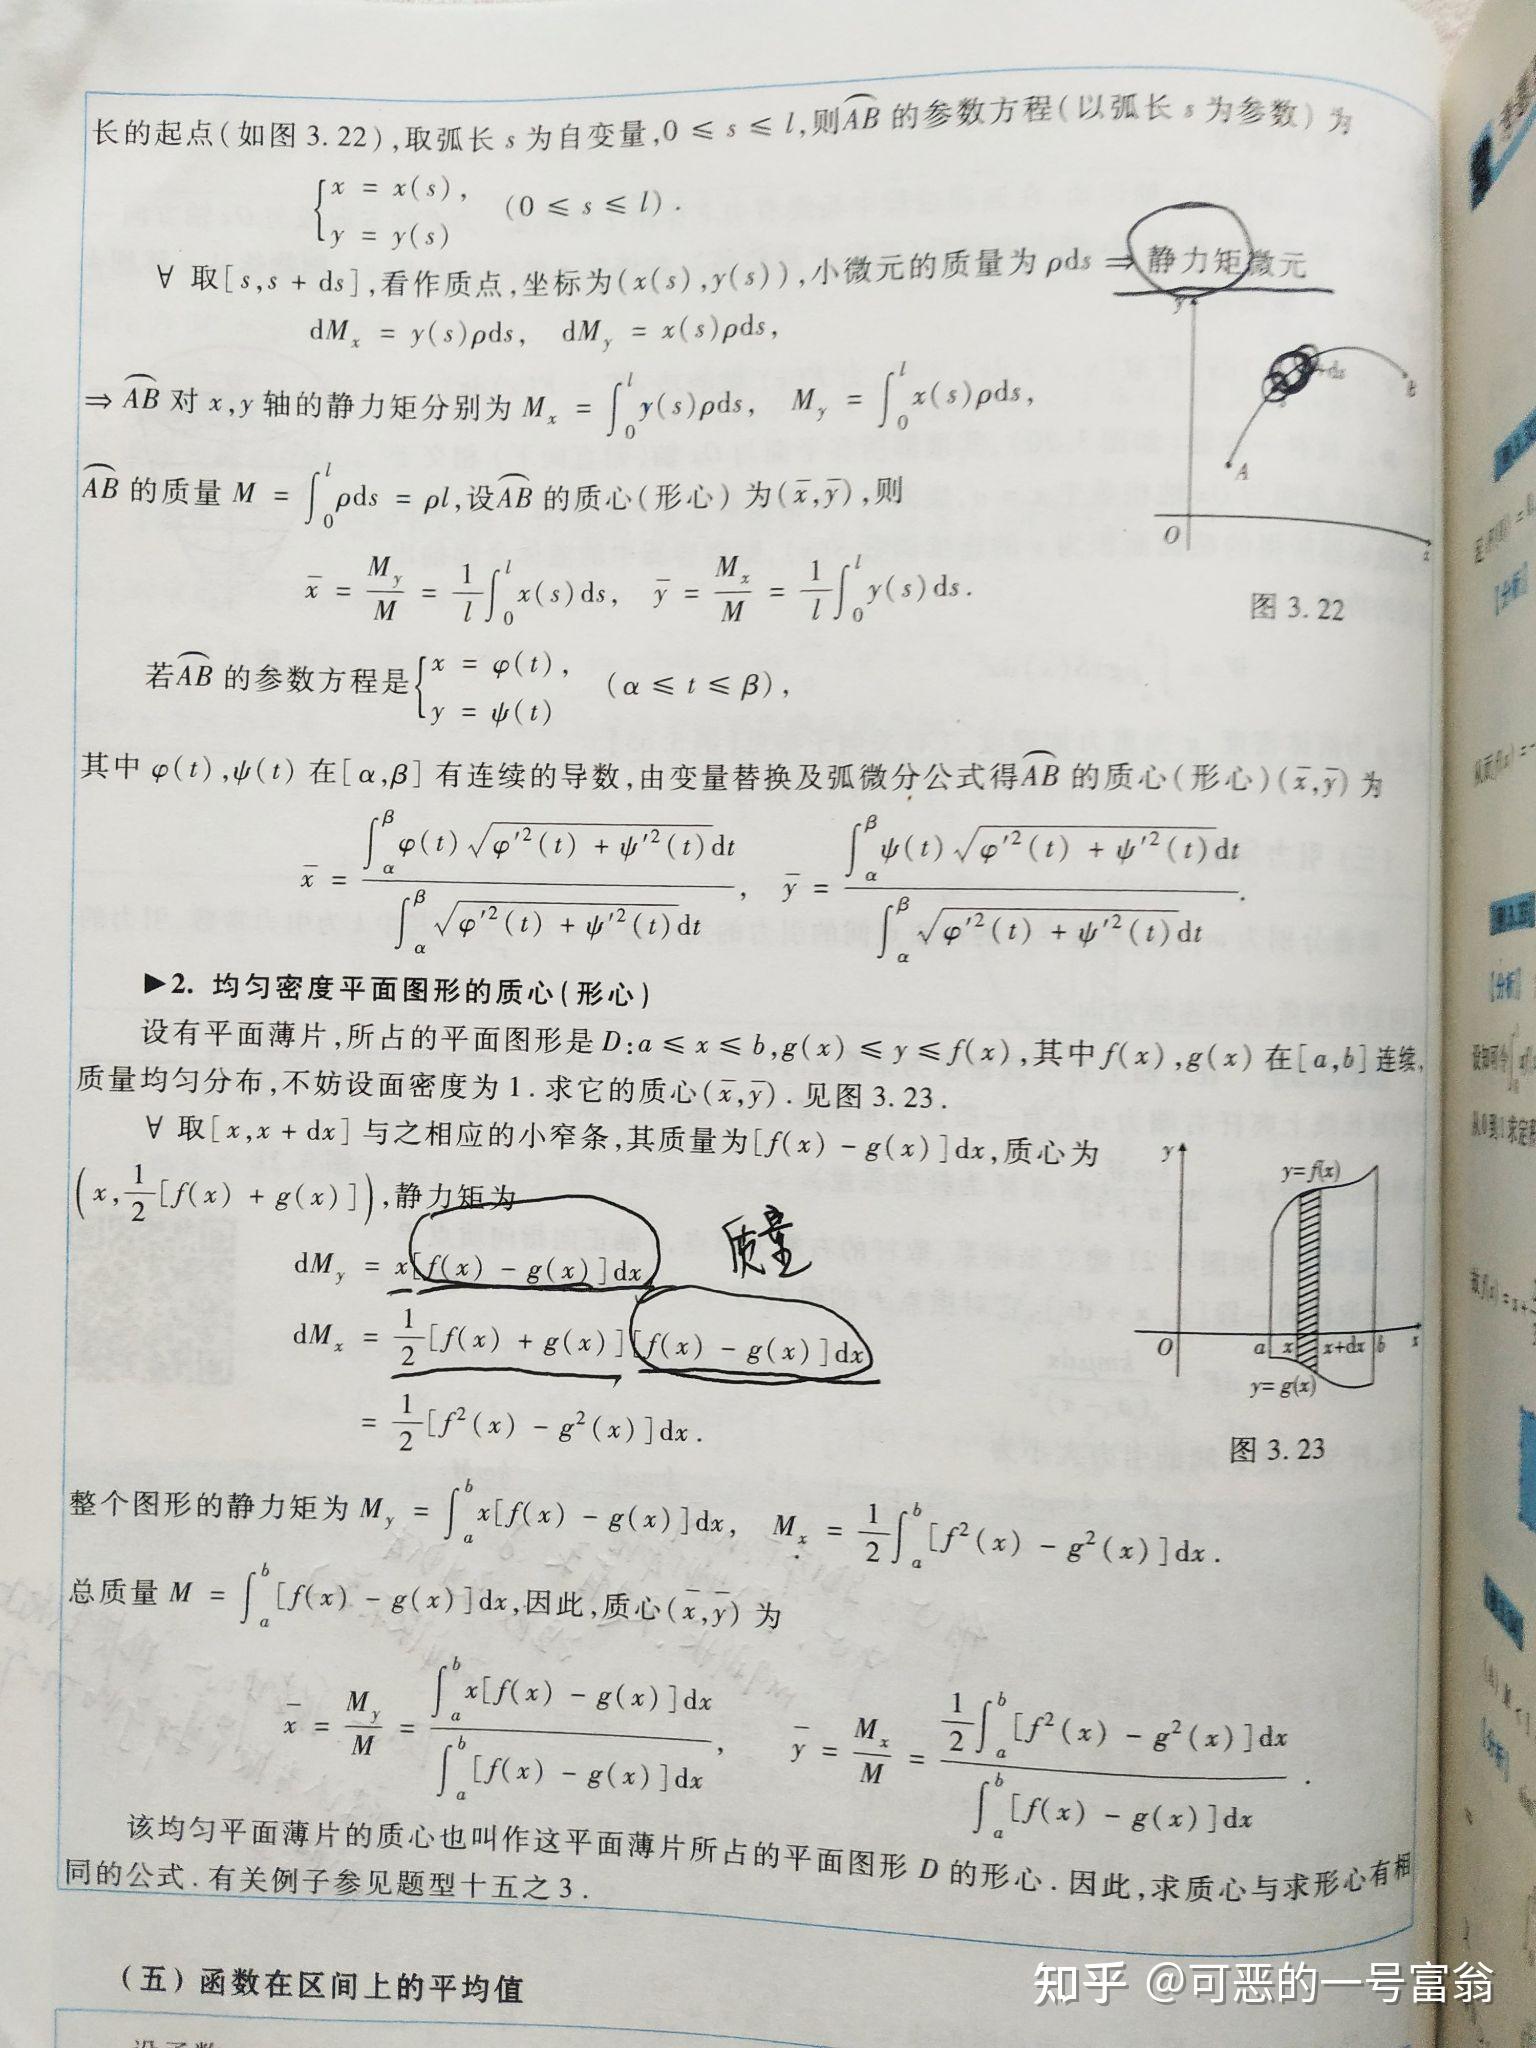 长的起点(如图 3.22),取弧长 s 为自变量,0 ≤ s ≤ l,则$\overset{\frown}{AB}$ 的参数方程(以弧长 s 为参数) 为
$\begin{cases} x = x(s), \\ y = y(s) \end{cases}$ (0 ≤ s ≤ l).
∀ 取[s,s + ds],看作质点,坐标为(x(s),y(s)),小微元的质量为 ρds ⇒ 静力矩微元
$dM_x = y(s)ρds, dM_y = x(s)ρds,$
⇒ $\overset{\frown}{AB}$ 对 x,y 轴的静力矩分别为 $M_x = \int_0^l y(s)ρds, M_y = \int_0^l x(s)ρds,$
$\overset{\frown}{AB}$ 的质量 $M = \int_0^l ρds = ρl$,设$\overset{\frown}{AB}$ 的质心(形心) 为$(\bar{x},\bar{y})$,则
$\bar{x} = \frac{M_y}{M} = \frac{1}{l}\int_0^l x(s)ds, \bar{y} = \frac{M_x}{M} = \frac{1}{l}\int_0^l y(s)ds.$
y
s
+ds
B
A
O
x
图 3.22
若$\overset{\frown}{AB}$ 的参数方程是$\begin{cases} x = φ(t), \\ y = ψ(t) \end{cases}$ (α ≤ t ≤ β),
其中 φ(t),ψ(t) 在[α,β] 有连续的导数,由变量替换及弧微分公式得$\overset{\frown}{AB}$ 的质心(形心)$(\bar{x},\bar{y})$ 为
$\bar{x} = \frac{\int_α^β φ(t)\sqrt{φ'^2(t) + ψ'^2(t)}dt}{\int_α^β \sqrt{φ'^2(t) + ψ'^2(t)}dt}, \bar{y} = \frac{\int_α^β ψ(t)\sqrt{φ'^2(t) + ψ'^2(t)}dt}{\int_α^β \sqrt{φ'^2(t) + ψ'^2(t)}dt}.$
▶2. 均匀密度平面图形的质心(形心)
设有平面薄片,所占的平面图形是 D:a ≤ x ≤ b,g(x) ≤ y ≤ f(x),其中 f(x),g(x) 在[a,b] 连续,
质量均匀分布,不妨设面密度为 1.求它的质心$(\bar{x},\bar{y})$.见图 3.23.
∀ 取[x,x + dx] 与之相应的小窄条,其质量为[f(x) − g(x)]dx,质心为
$\left(x,\frac{1}{2}[f(x) + g(x)]\right)$,静力矩为
$dM_y = x[f(x) − g(x)]dx$
质量
$dM_x = \frac{1}{2}[f(x) + g(x)][f(x) − g(x)]dx$
$= \frac{1}{2}[f^2(x) − g^2(x)]dx.$
y
y=f(x)
O
a
x
x+dx
b
x
y=g(x)
图 3.23
整个图形的静力矩为 $M_y = \int_a^b x[f(x) − g(x)]dx, M_x = \frac{1}{2}\int_a^b [f^2(x) − g^2(x)]dx.$
总质量 $M = \int_a^b [f(x) − g(x)]dx$,因此,质心$(\bar{x},\bar{y})$ 为
$\bar{x} = \frac{M_y}{M} = \frac{\int_a^b x[f(x) − g(x)]dx}{\int_a^b [f(x) − g(x)]dx}, \bar{y} = \frac{M_x}{M} = \frac{\frac{1}{2}\int_a^b [f^2(x) − g^2(x)]dx}{\int_a^b [f(x) − g(x)]dx}.$
该均匀平面薄片的质心也叫作这平面薄片所占的平面图形 D 的形心.因此,求质心与求形心有相
同的公式.有关例子参见题型十五之 3.
(五) 函数在区间上的平均值
知乎 @可恶的一号富翁